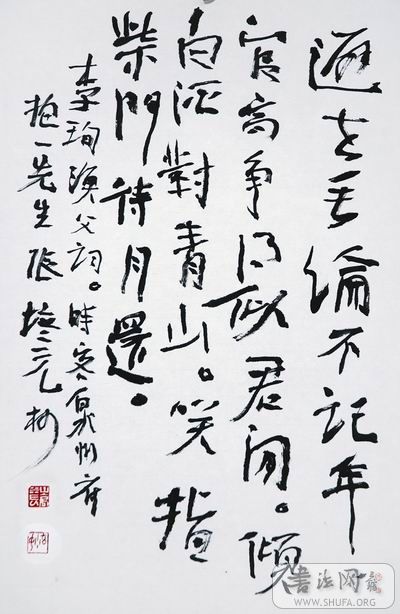 避世垂綸不記年
官高争得似君闲。傾
白酒對青山。笑指
柴門待月還。
李珣漁父詞。時客泉州
一先生張
書法网
WWW.SHUFA.ORG